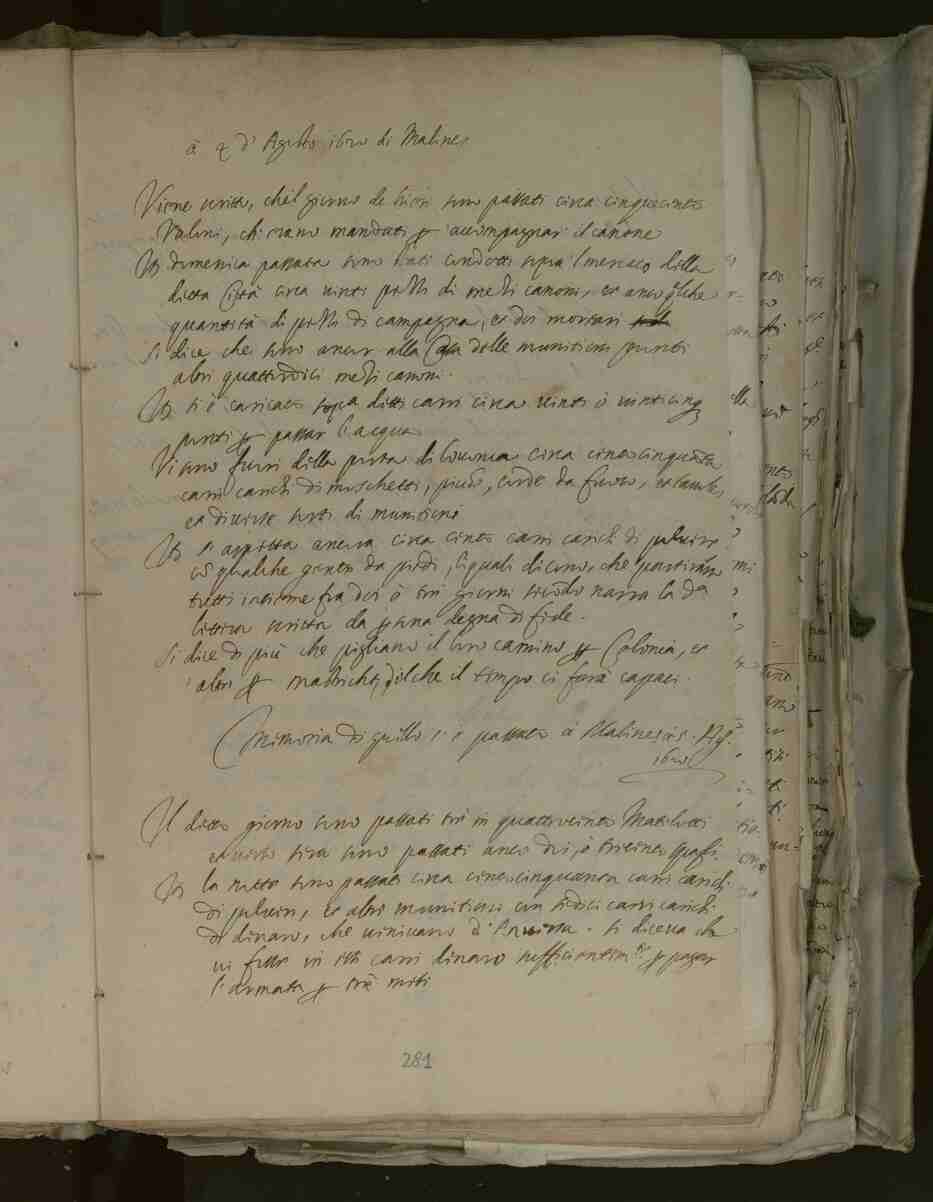 à 4 d' Agosto 1620 di Malines
Viene scritto, ch'el giorno de hieri sono passati circa cinquecento
Valoni, ch'erano mandati p accompagnar il canone
It domenica passata sono stati condotti sopra l mercato della
detta Città circa vinti pezzi di mezi canoni, et anco qlche
quantità di pezzi di campagna, et doi mortari
Si dice che sono ancor alla Casa delle munitioni pronti
altri quattordici mezi canoni.
It si è caricato sopra detti carri circa vinti ò vinticinq
ponti p passar l'acqua
Vi sono fuori della porta di Lovania circa centocinquāta
carri carichi di moschetti, piche, corde da fuoco, et
et diverse sorti di munitioni
It si aspetta ancora circa cento carri carichi di polvere
cō qualche gente da piedi, liquali dicono, che partirano
tutti insieme fra doi ò tre giorni secōdo narra la dta
lettera scritta da psona degna di fede.
Si dice di più che pigliano il loro camino p Colonia, et
altri p Mastricht, del che il tempo ci farà capaci.
Memoria di quello s'è passato à Malines à 5. Ag.
1620
Il detto giorno sono passati trè in quattrocento Matelotti
et verso sera sono passati anco doi, ò trecento
It la notte sono passati circa centocinquanta carri carichi
di polvere, et altri munitioni con sedici carri carichi
di dinaro, che venivano d'Anversa. Si diceva che
vi fosse in essi carri dinaro sufficientemte p pagar
l'armata p trè mesi
281